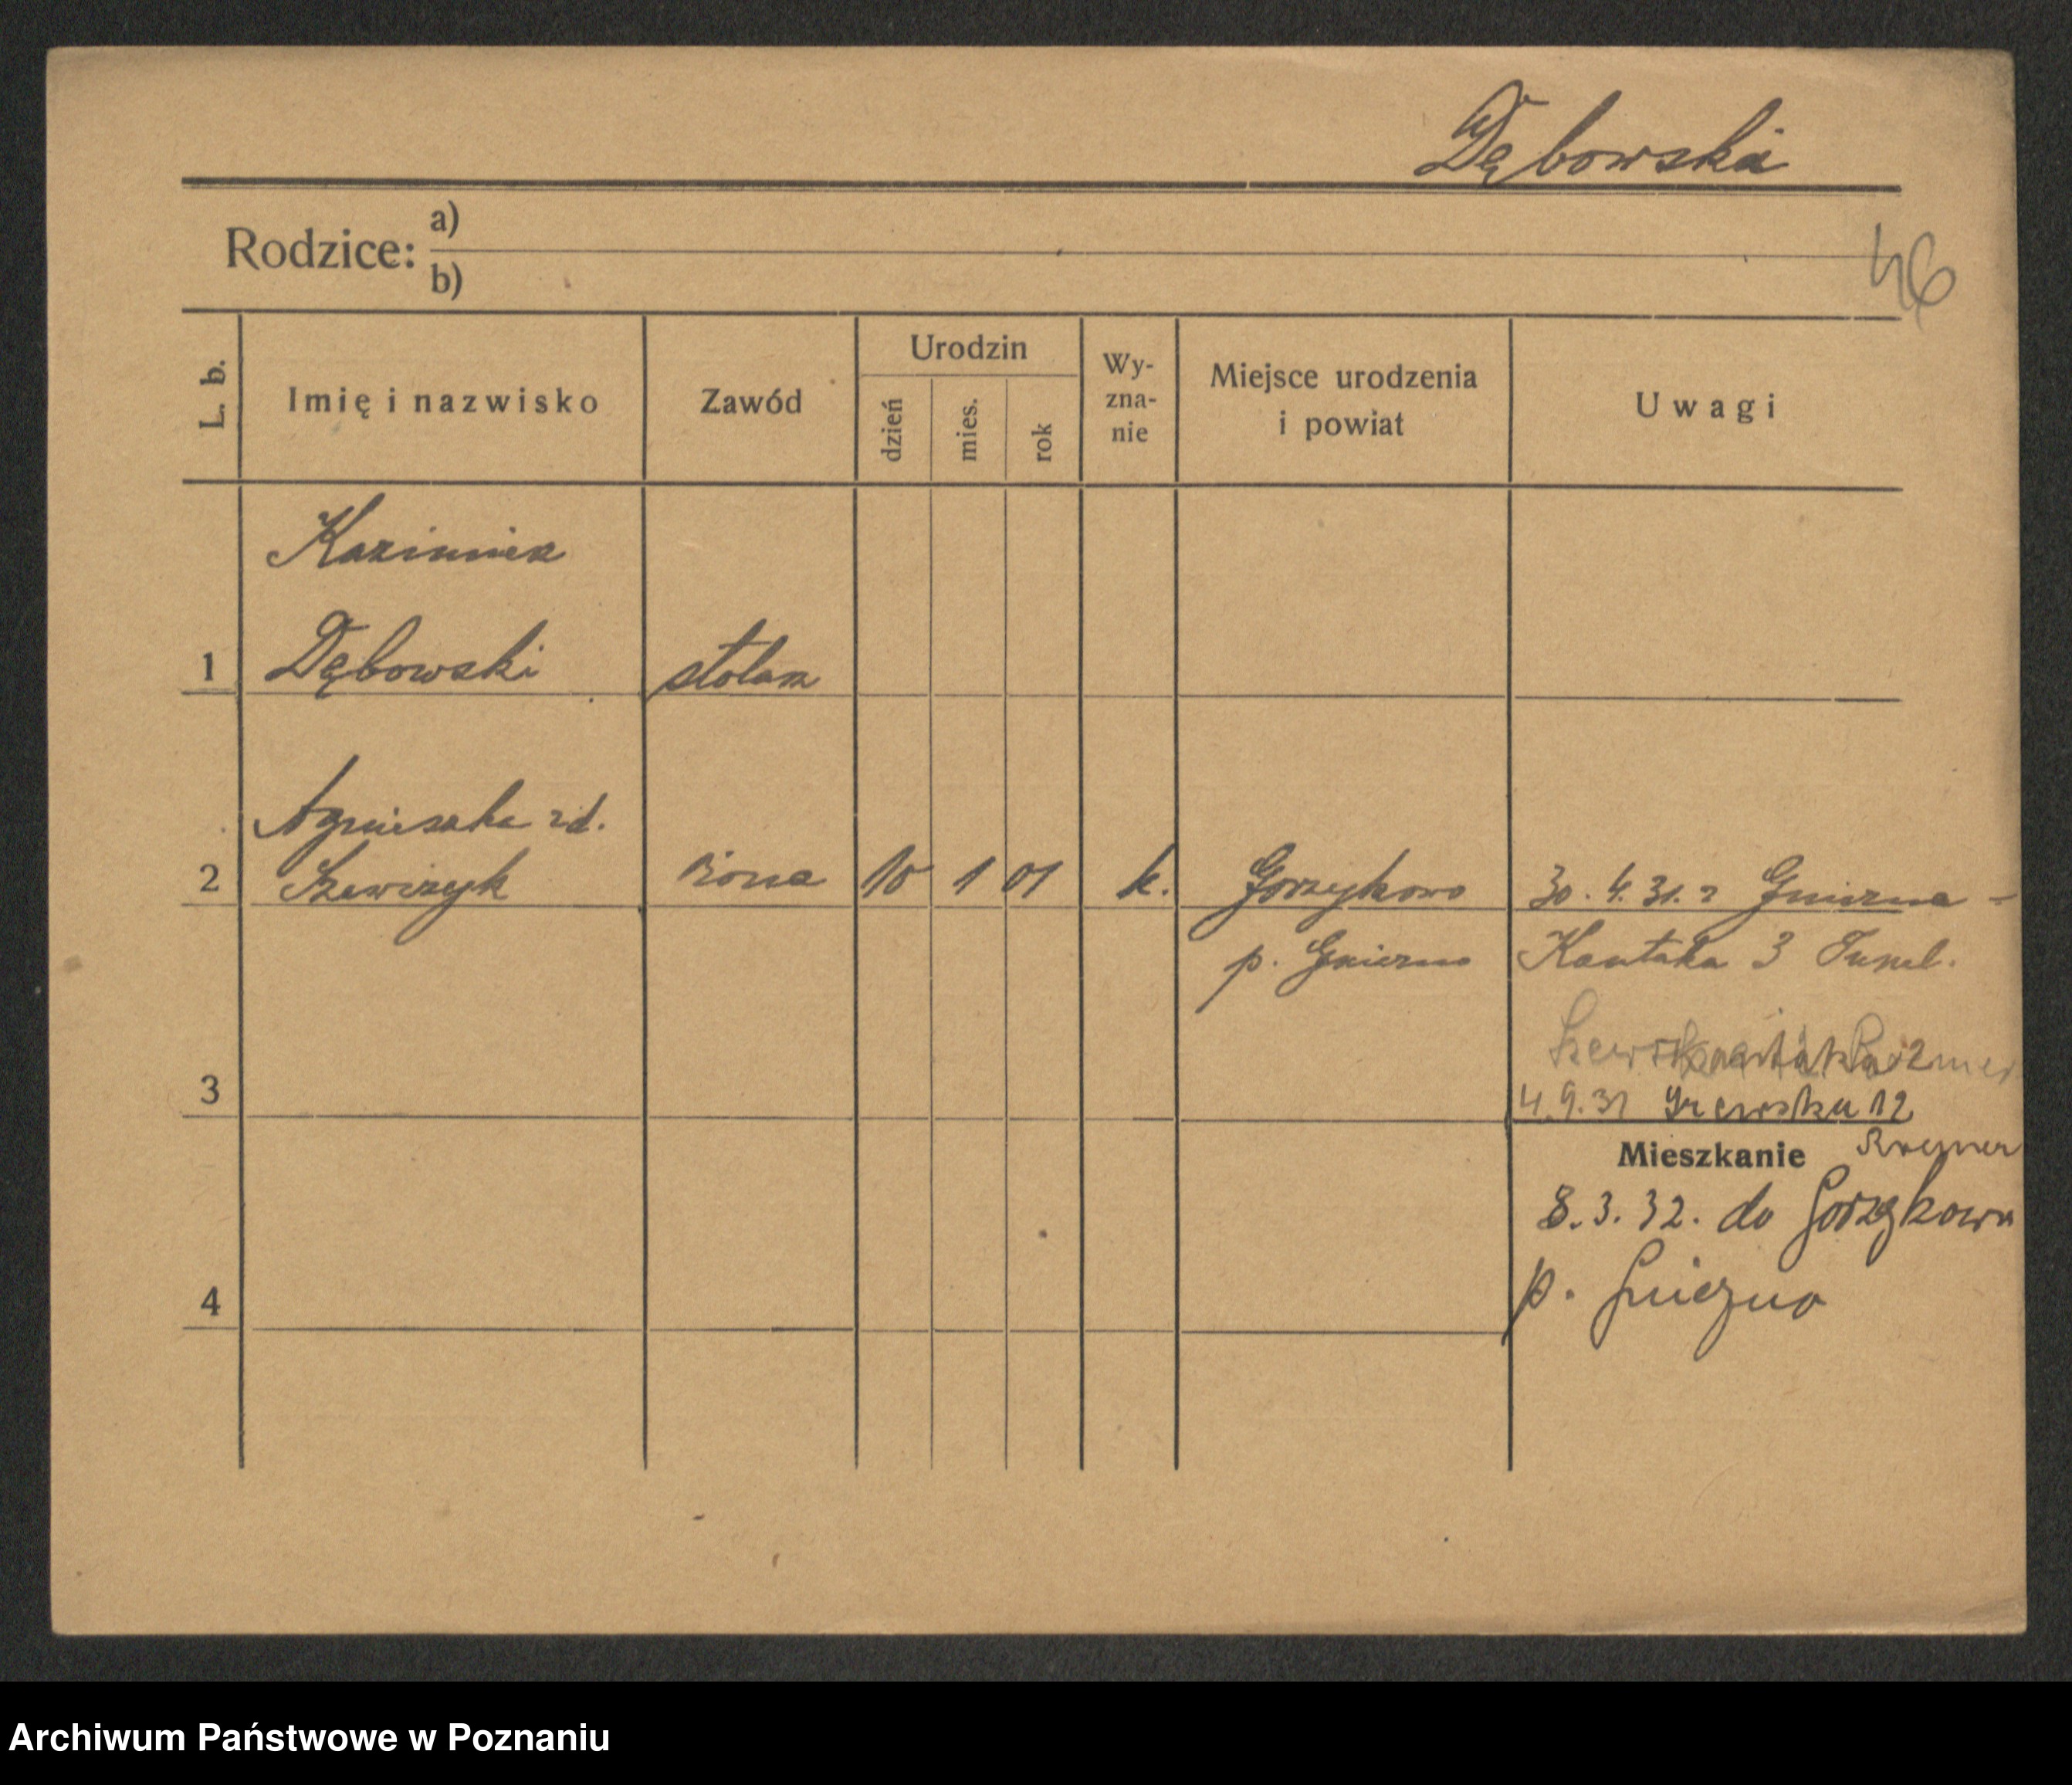 Dębowska
Rodzice: a)
b)
46
L. b.
Imię i nazwisko
Zawód
Urodzin
dzień
mies.
rok
Wy-
zna-
nie
Miejsce urodzenia
i powiat
Uwagi
Kazimierz
1 Dębowski stolarz
Agnieszka zd.
2 Szewczyk żona 10 1 01 k. Gorzykowo 30.4.31. z Gniezna -
p. Gniezno Kantaka 3
3
4.9.31 12
Mieszkanie
8.3.32. do Gorzykowa
p. Gniezno
4
Archiwum Państwowe w Poznaniu